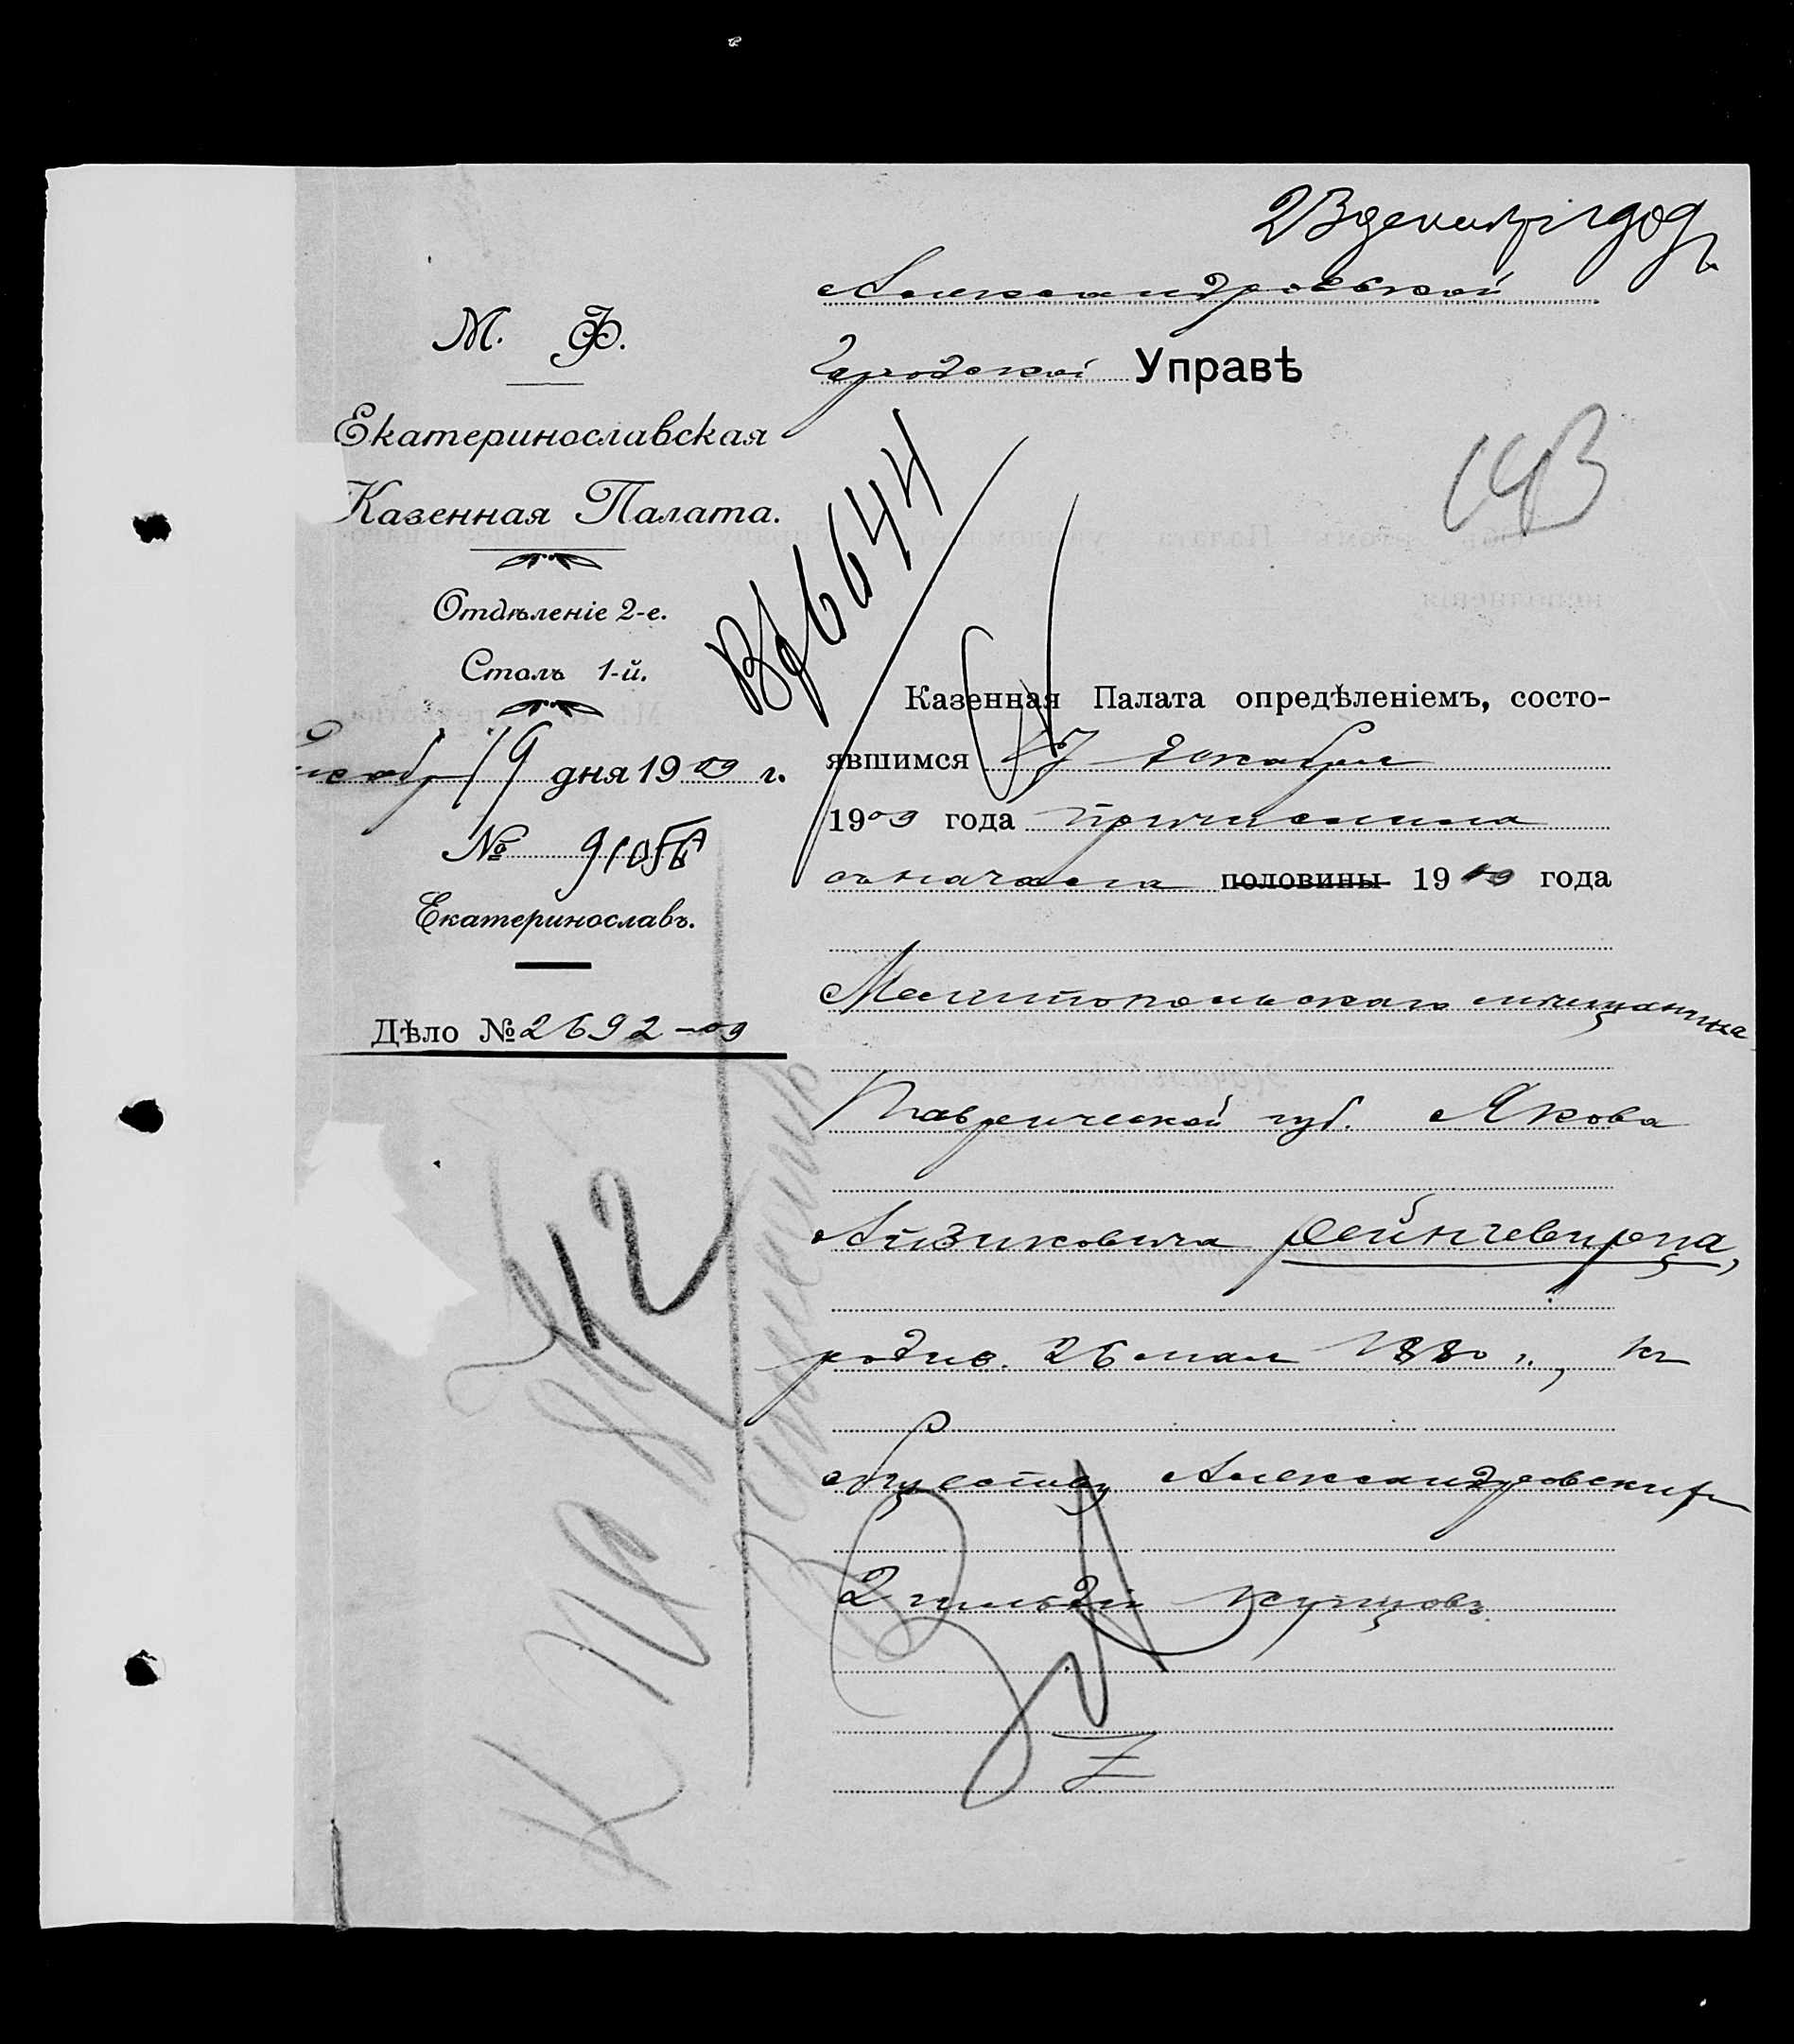 23 декабря 1909 г.
Александровской
Городской Управѣ
М. Ф.
Екатеринославская
Казенная Палата.
Отдѣленіе 2-е.
Столъ 1-й.
Декабря 19 дня 1909 г.
№ 91056
Екатеринославъ.
Дѣло № 2692-09
Вх 6644
193
Казенная Палата опредѣленіемъ, состо-
явшимся 17 декабря
1909 года причислила
съ начала половины 1909 года
Мелитопольскаго мѣщанина
Таврической губ. Якова
Айзиковича Вейнгевирца,
родив. 26 мая 1880 г., къ
обществу Александровскихъ
2 гильдіи купцовъ.